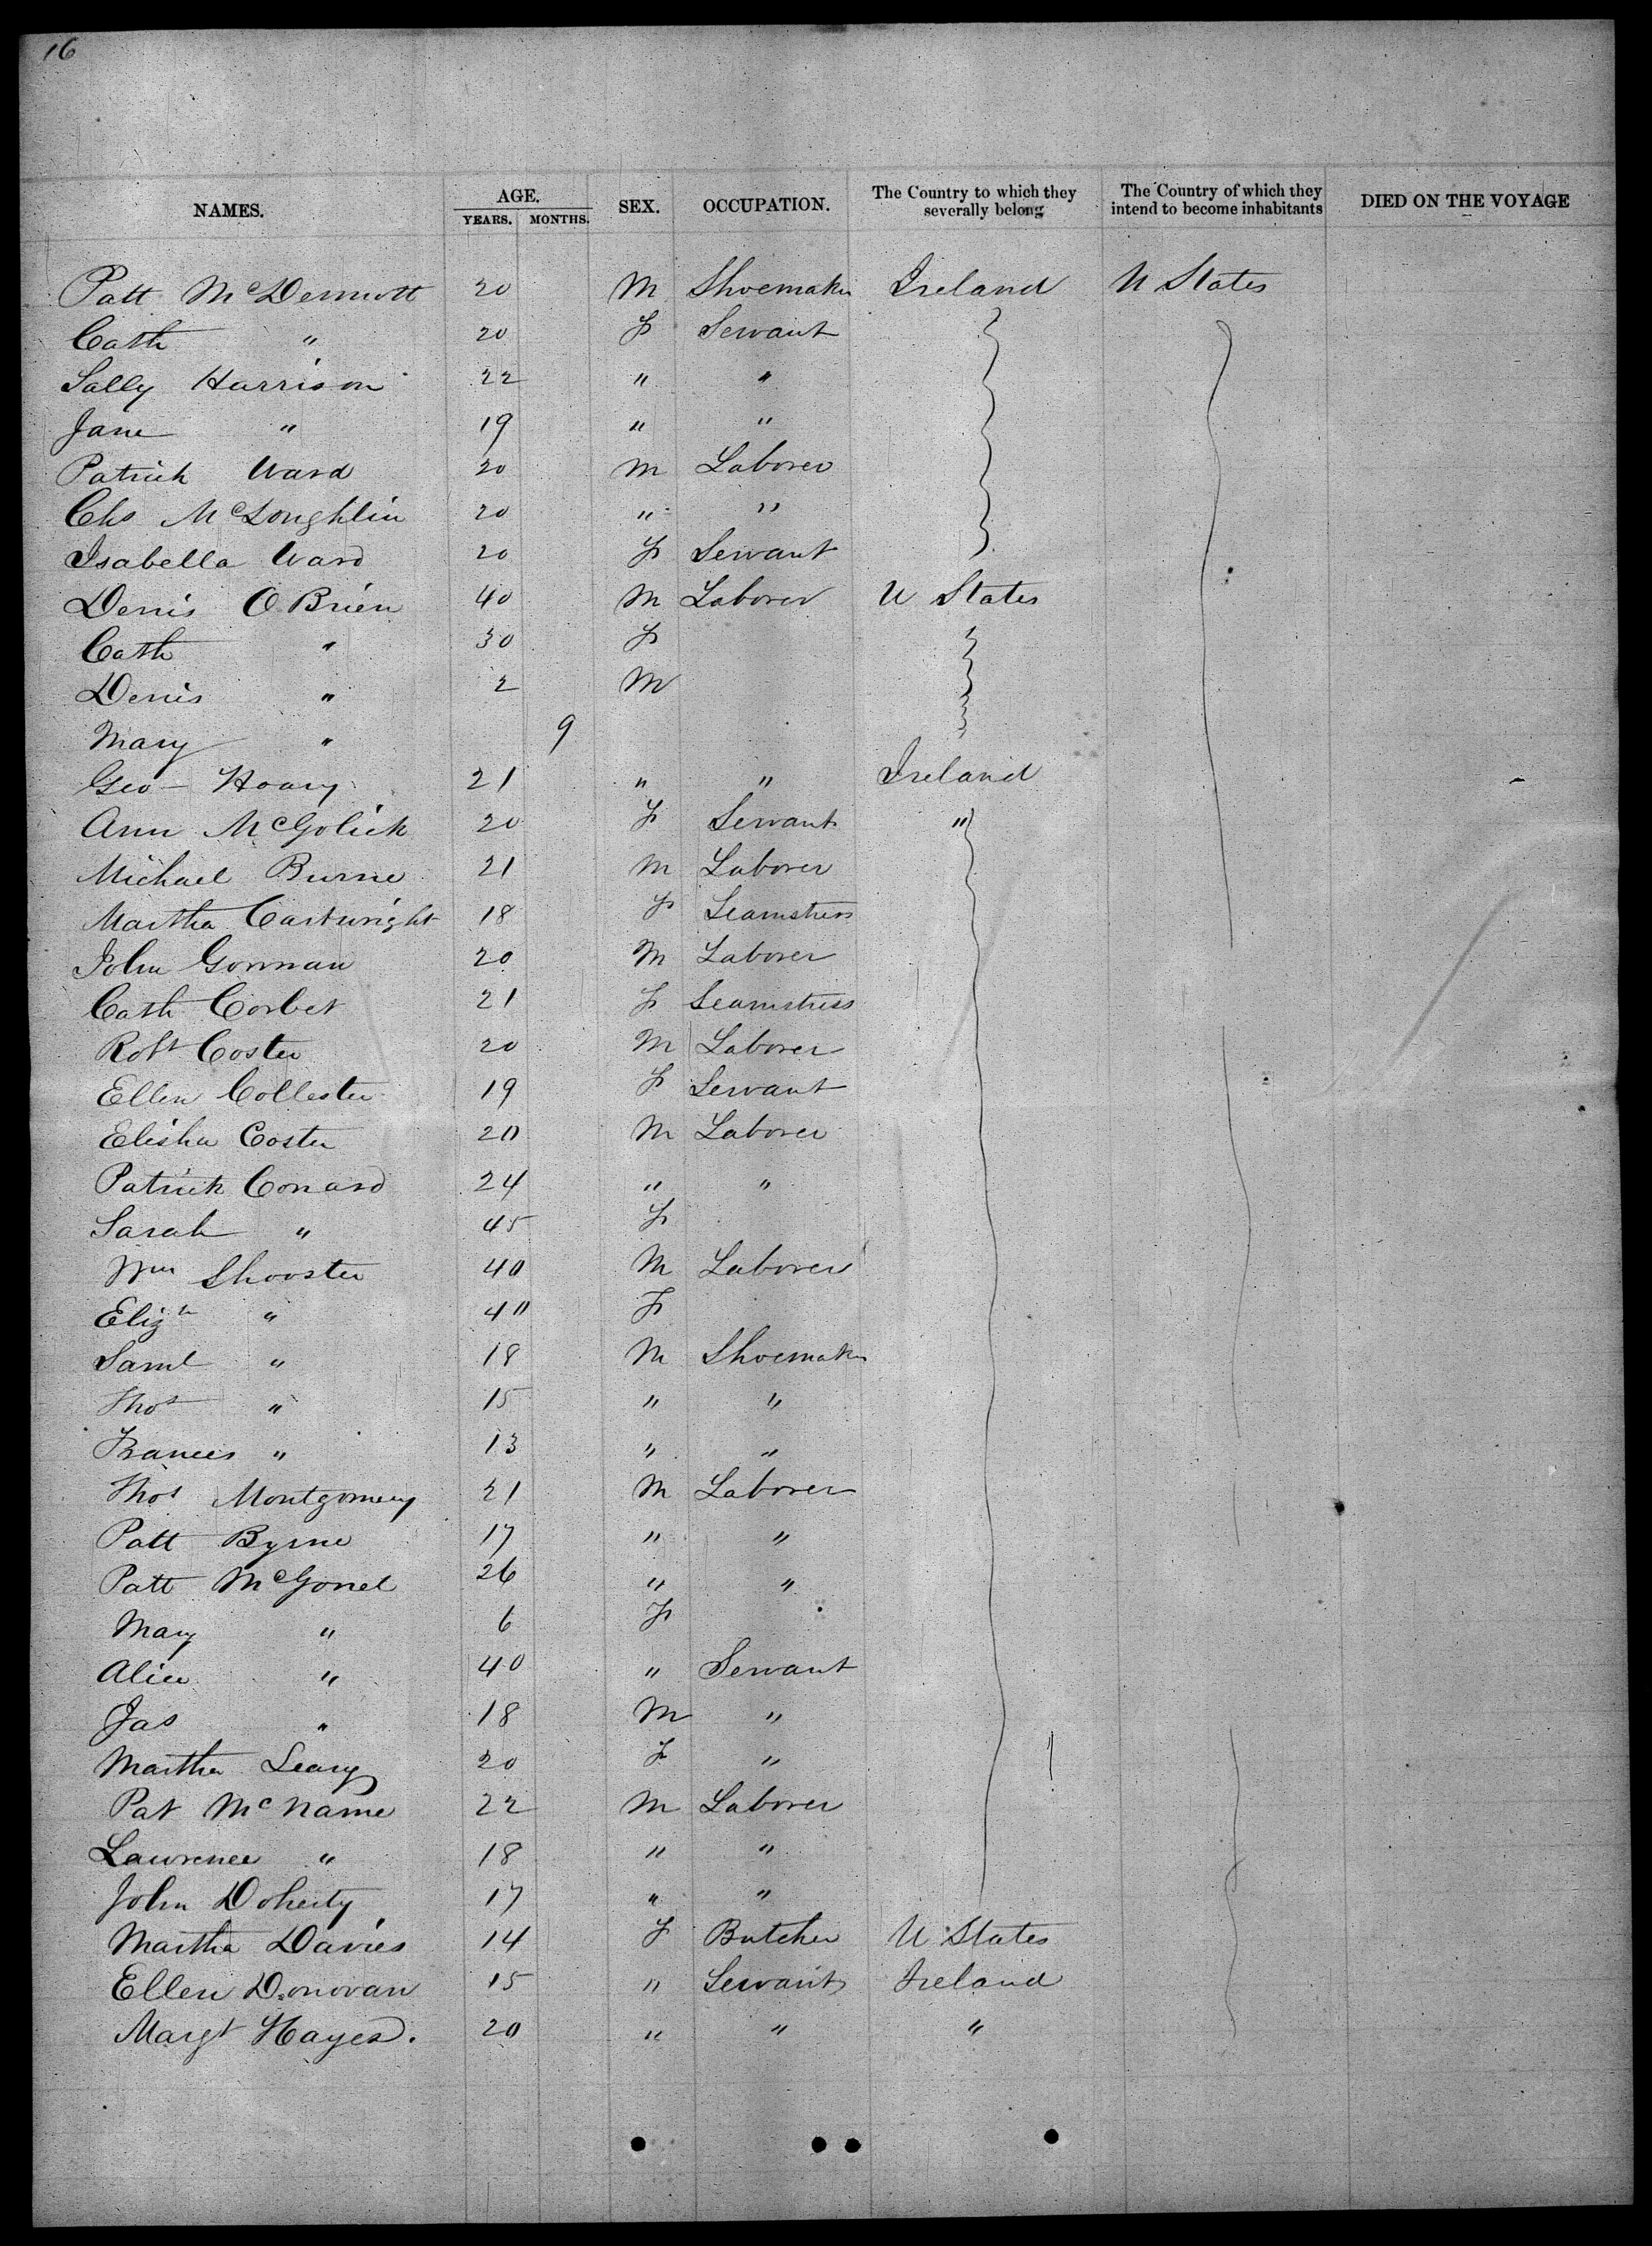 16
NAMES. AGE. SEX. OCCUPATION. The Country to which they severally belong The Country of which they intend to become inhabitants DIED ON THE VOYAGE
YEARS. MONTHS.
Patt McDermott 20 M Shoemaker Ireland U States
Cath " 20 F Servant
Sally Harrison 22 " "
Jane " 19 " "
Patrick Ward 20 M Laborer
Chs McLoughlin 20 " "
Isabella Ward 20 F Servant
Denis O Brien 40 M Laborer U States
Cath " 30 F
Denis " 2 M
Mary " 9
Geo Hoary 21 " " Ireland
Ann McGolick 20 F Servant "
Michael Burne 21 M Laborer
Martha Cartwright 18 F Seamstress
John Gorman 20 M Laborer
Cath Corbet 21 F Seamstress
Robt Coster 20 M Laborer
Ellen Collester 19 F Servant
Elisha Coster 20 M Laborer
Patrick Conard 24 " "
Sarah " 45 F
Wm Shooster 40 M Laborer
Elizh " 40 F
Saml " 18 M Shoemaker
Thos " 15 " "
Frances " 13 " "
Thos Montgomery 21 M Laborer
Patt Byrne 17 " "
Patt McGonel 26 " "
Mary " 6 F
Alice " 40 " Servant
Jas " 18 M "
Martha Leary 20 F "
Pat McName 22 M Laborer
Lawrence " 18 " "
John Doherty 17 " "
Martha Davies 14 F Butcher U States
Ellen Donovan 15 " Servant Ireland
Margt Hayes. 20 " " "